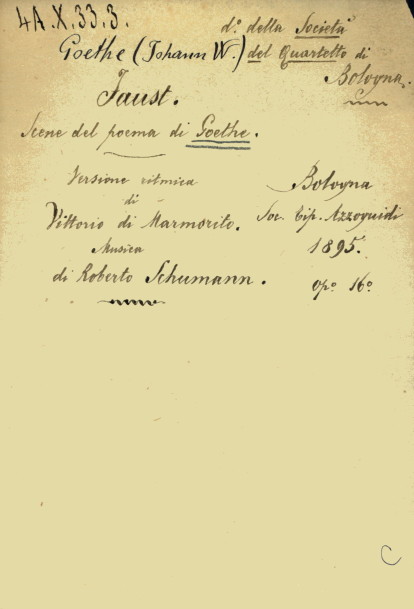 4A.X.33.3.
d.º della Società
Goethe (Johann W.) del Quartetto di
Bologna.
Faust.
Scene del poema di Goethe.
Versione ritmica
di
Vittorio di Marmorito.
Musica
di Roberto Schumann.
Bologna
Soc. Tip. Azzoguidi
1895.
opº 16º
C